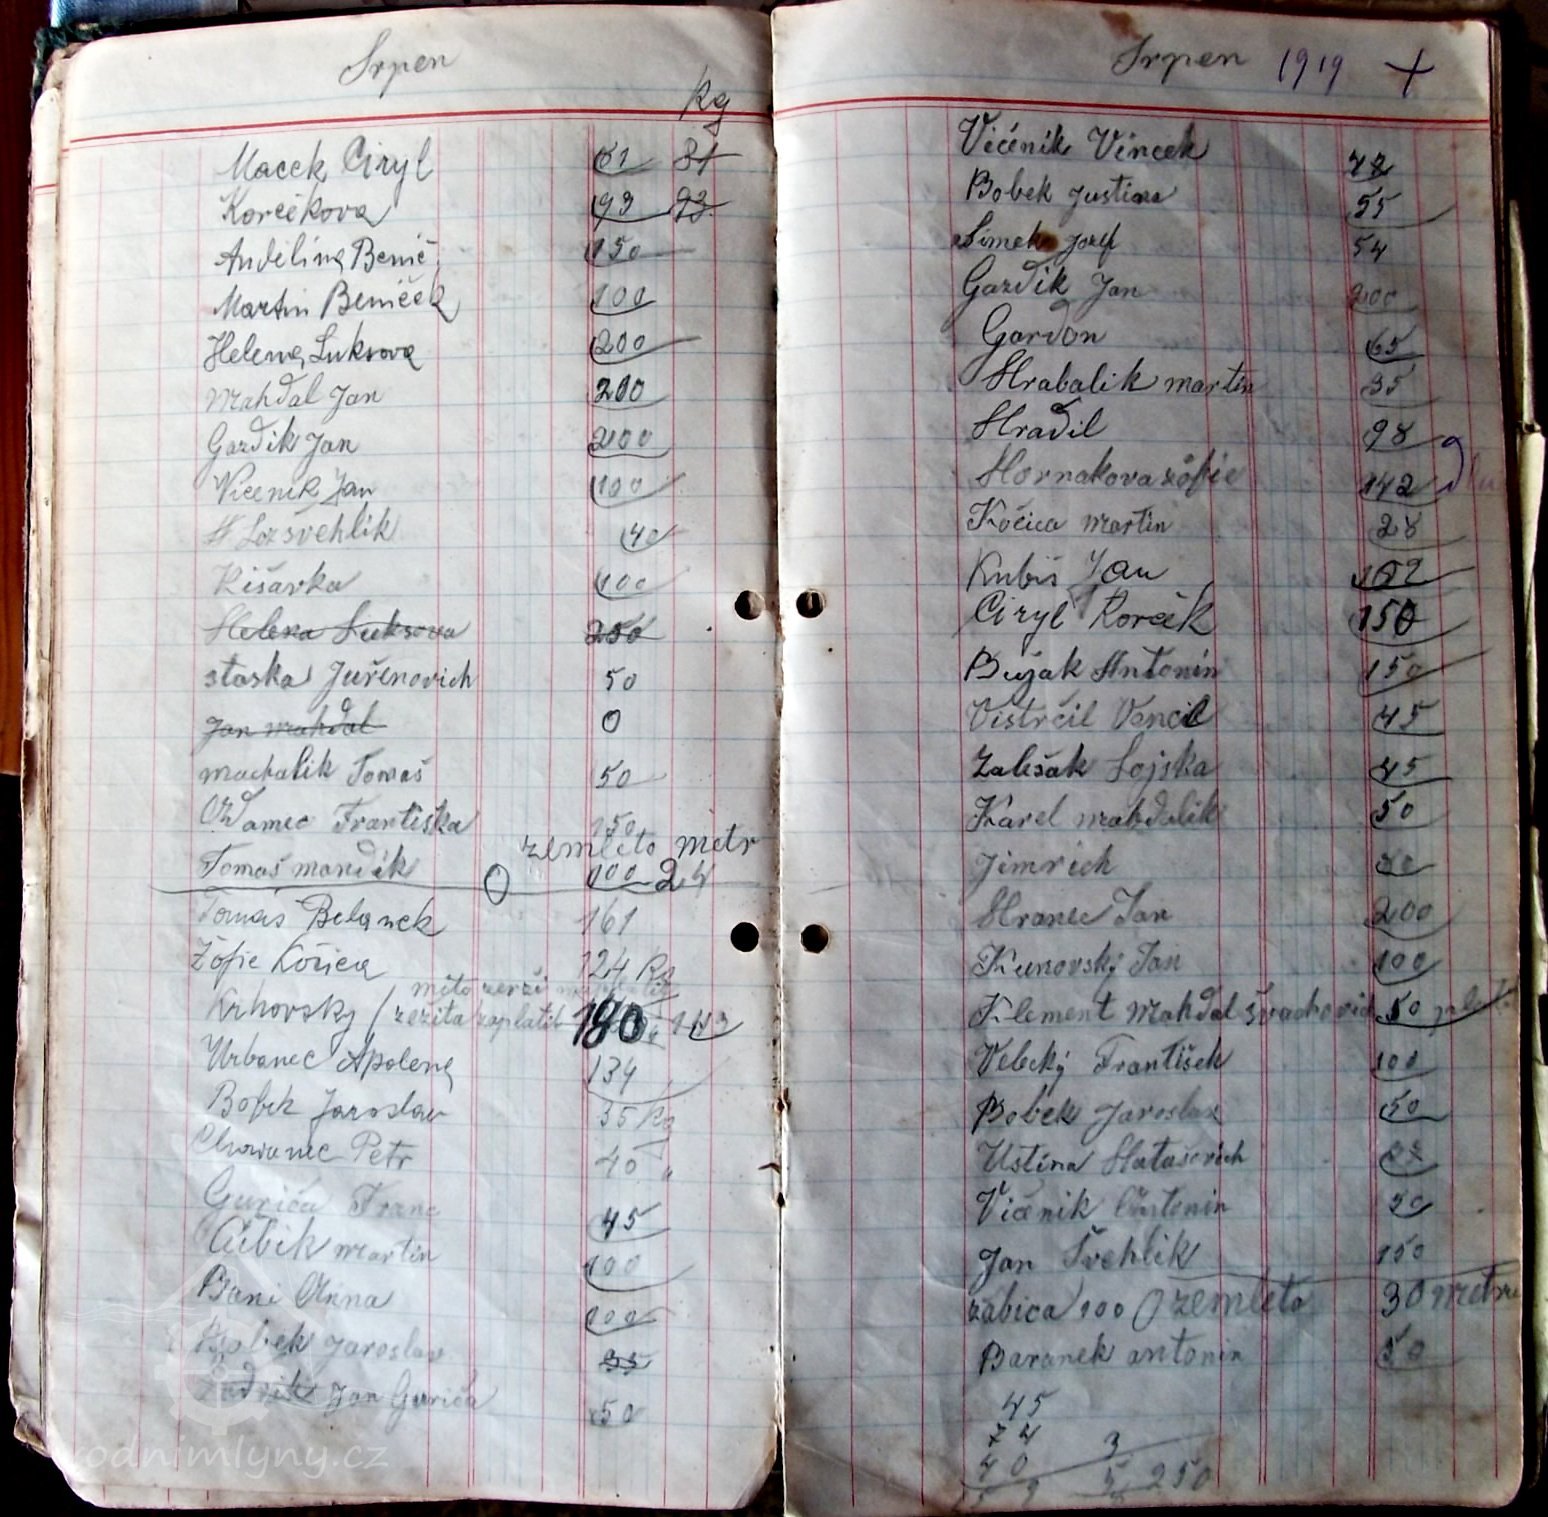 Srpen
kg
Macek Ciryl 61 31
Korčěkova 93 93
Anděliną Benič.
150
Martin Beniček 100
Helena Luksova 200
Mahdal Jan 200
Gazdik Jan 200
Vičenik Jan 100
Švehlik 40
Kišavka 100
Helena Luksova 250
staska Juřenovich 50
Jan Mahdal 0
machalik Tomaš 50
Františka 150
zemleto metr
Tomaš 100 24
Tomáš Belanek 161
Žofie Kočica 124 Kg
mito
Krhovsky / zežita zaplatil 180
Urbanec Apolena 134
Bobek Jaroslav 35 Kg
Chovanec Petr 40 "
Guriča Franc 45
Cibik martin 100
Bani Anna 100
Bobek Jaroslav 35
Jan Guriča 50
vodnimlyny.cz
Srpen 1919 +
Vičenik Vincek 42
Bobek Justina 55
Šimek Jozef 54
Gazdik Jan 200
Gardon 65
Hrabalik martin 35
Hradil 98
Hornakova žofie 142
Kočica martin 28
Kubiš Jan
Ciryl Korčěk 150
Bujak Antonin 150
Vistrčil Vencil 45
Zališak Lojska 45
Karel mahdalik 50
Jimrich
Hranec Jan 200
Kunovský Jan 100
Klement Mahdal 50
Velecký František 100
Bobek Jaroslav 50
Ustina
Vičenik Antonin 50
Jan Švehlik 150
zabica 100 zemleto 30 metru
Baranek antonin 50
45
74 3
40 5 250